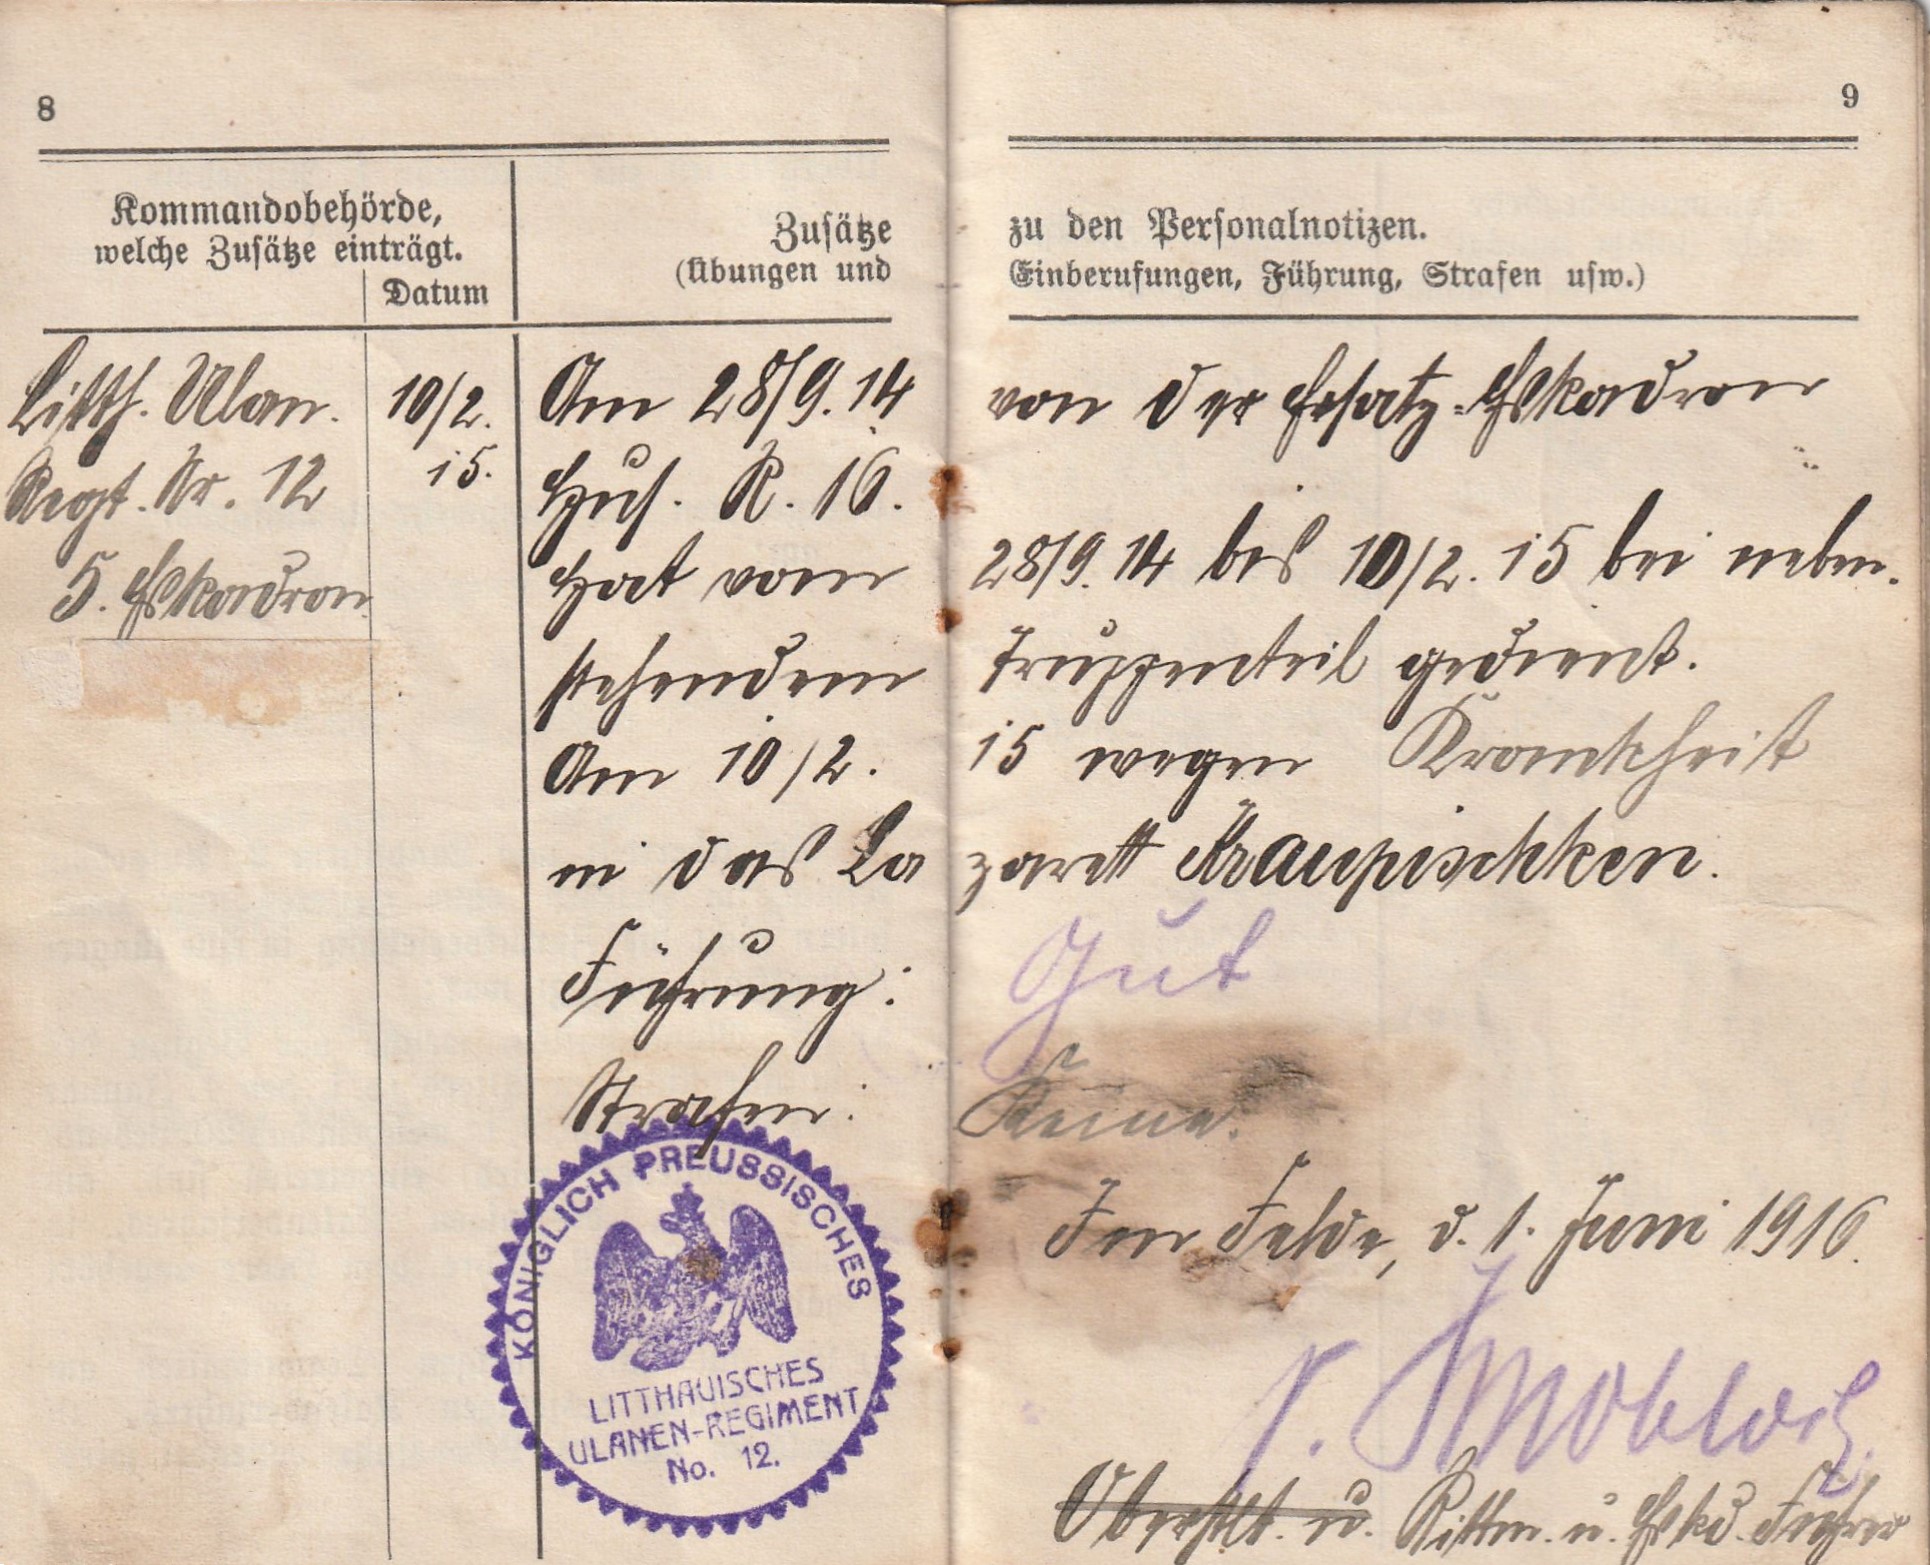 8
Kommandobehörde,
welche Zusätze einträgt.
Datum
Zusätze
(Übungen und
Litth. Ulan.
Regt. Nr. 12
5. Eskadron
10/2.
15.
Am 28/9.14
Hus. R. 16.
Hat vom
stehendem
Am 10/2.
in das La
Führung:
Strafen:
KÖNIGLICH PREUSSISCHES
LITTHAUISCHES
ULANEN-REGIMENT
No. 12.
9
zu den Personalnotizen.
Einberufungen, Führung, Strafen usw.)
von der Ersatz-Eskadron
28/9.14 bis 10/2.15 bei neben.
Truppenteil gedient.
15 wegen Krankheit
zarett Kraupischken.
Gut
Keine.
Im Felde, d. 1. Juni 1916.
v.
Oberstlt. u. Rittm. u. Eskd. Führer